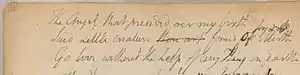 The Angel that presided oer my birth
Said Little creature formd of Joy & Mirth
Go love without the help of any Thing on Earth